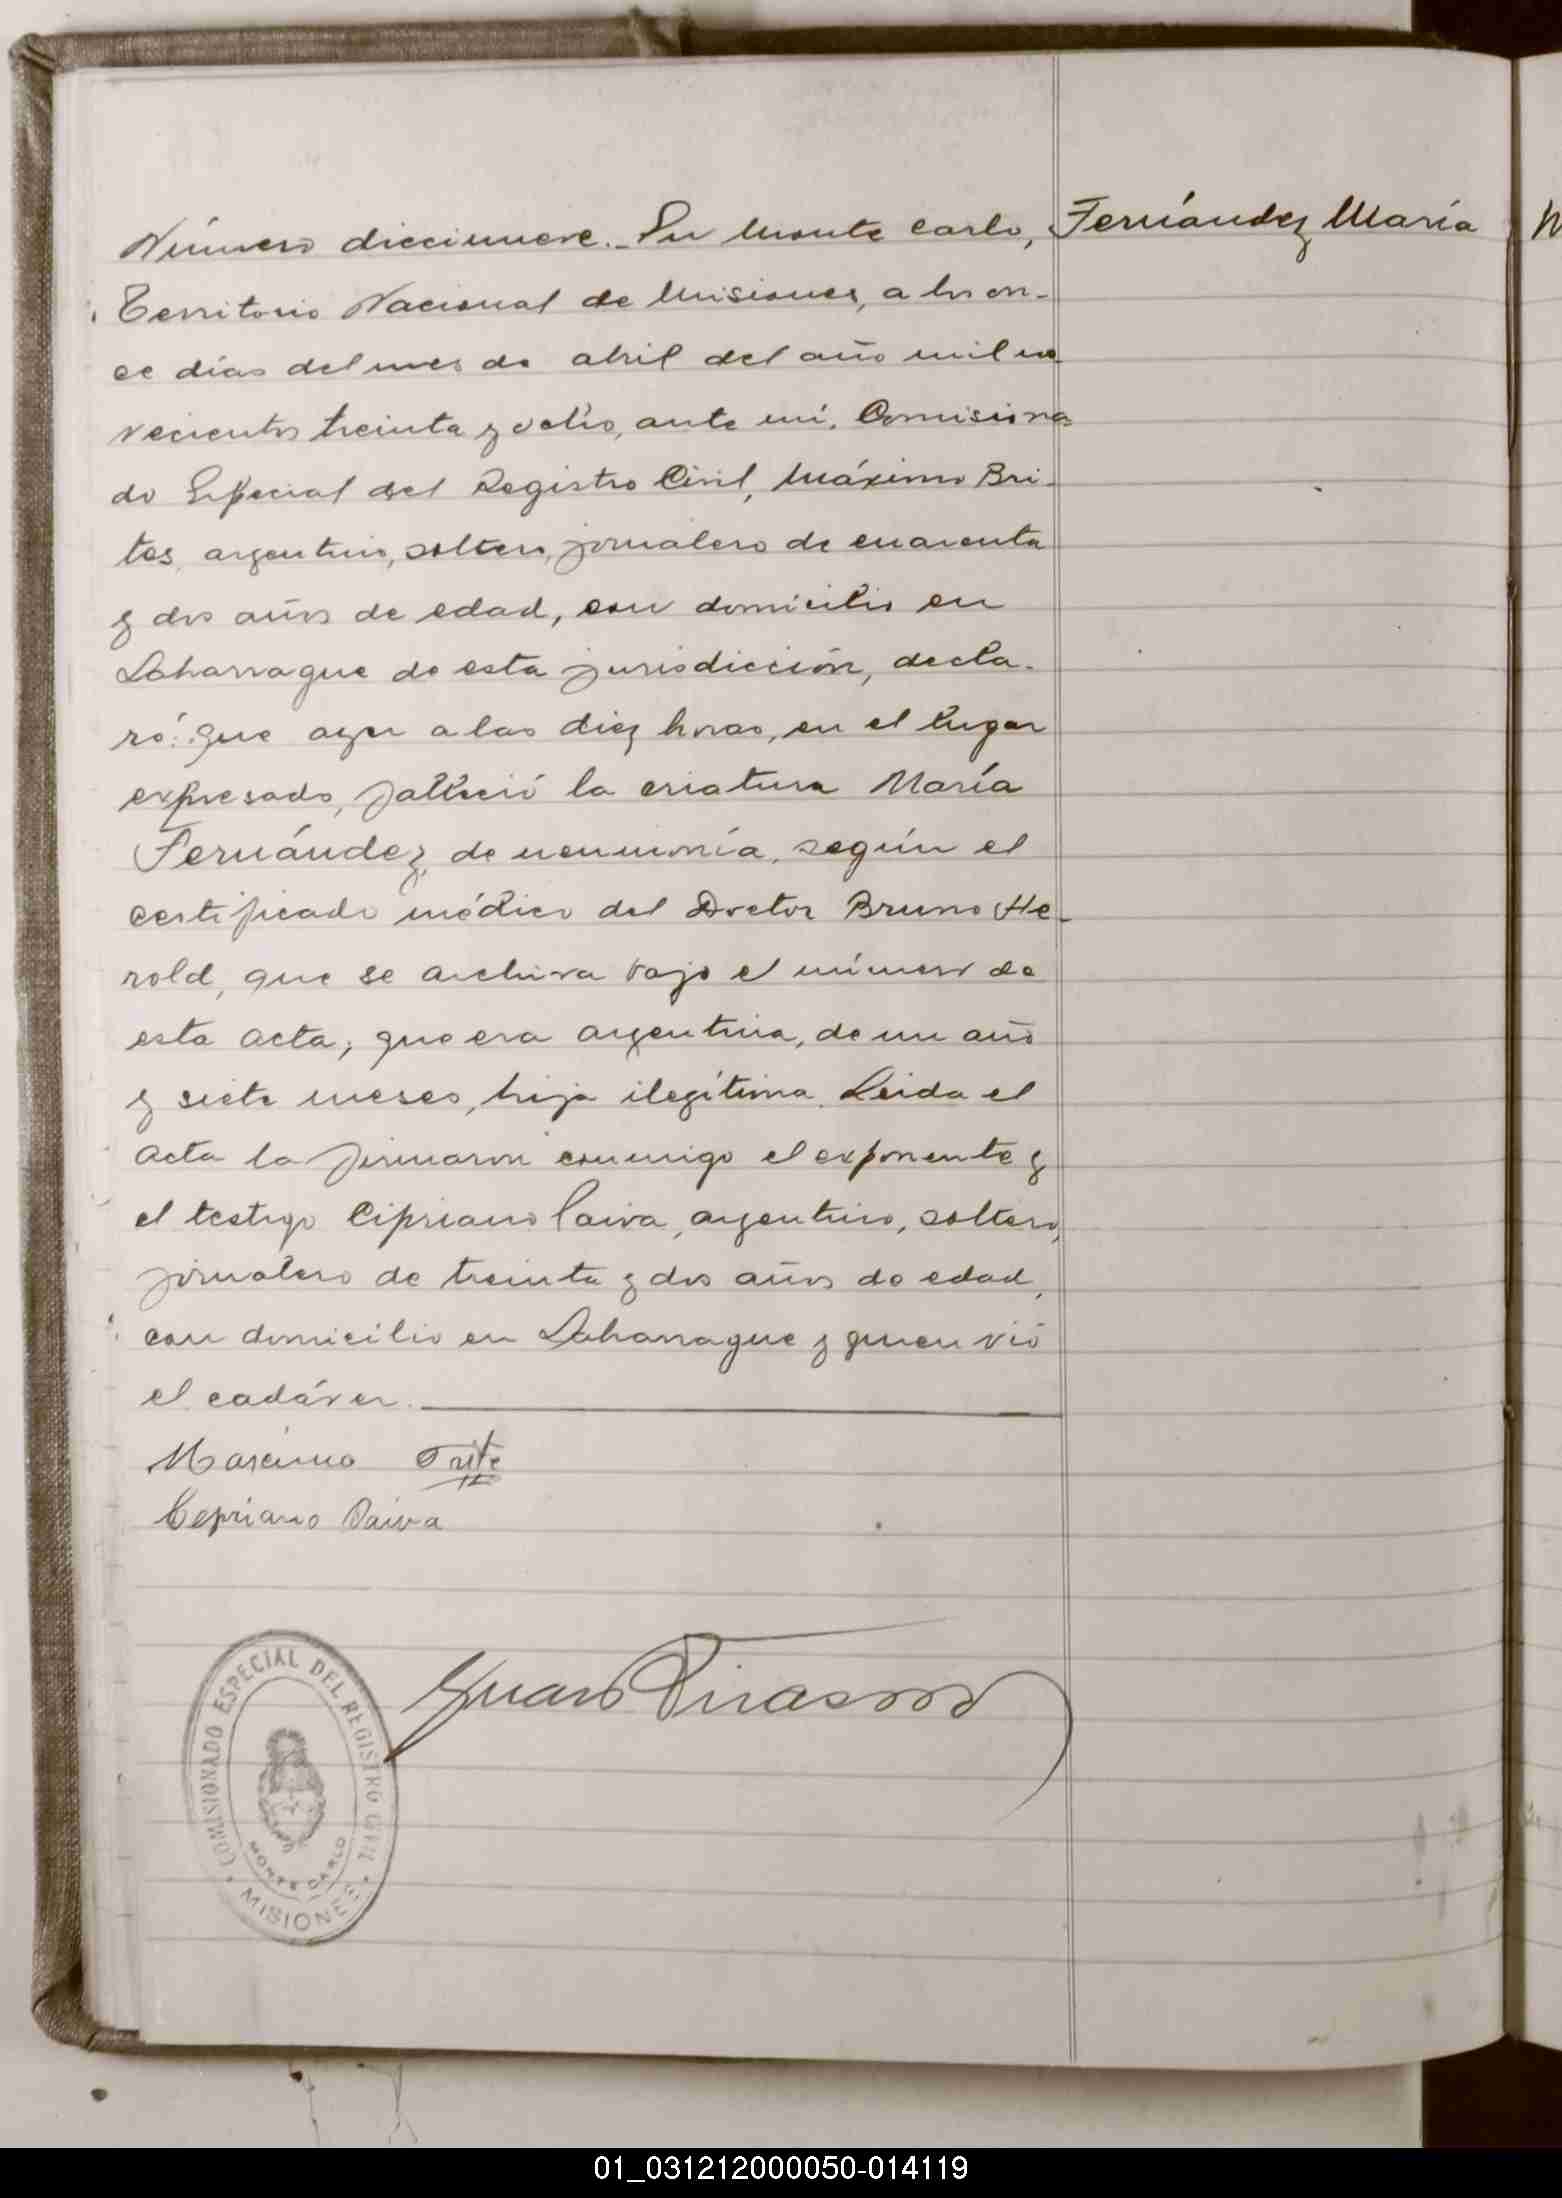 Número diecinueve. En Monte Carlo, Fernández María
Territorio Nacional de Misiones, a los on-
ce días del mes de abril del año mil no
vecientos treinta y ocho, ante mí, Comisiona
do Especial del Registro Civil, Máximo Bri-
tes, argentino, soltero, jornalero de cuarenta
y dos años de edad, con domicilio en
Laharrague de esta jurisdicción, decla-
ró: que ayer a las diez horas, en el lugar
expresado, falleció la criatura María
Fernández, de neumonía, según el
certificado médico del Doctor Bruno He-
rold, que se archiva bajo el número de
esta acta; que era argentina, de un año
y siete meses, hija ilegítima. Leida el
acta la firmaron conmigo el exponente y
el testigo Cipriano Paiva, argentino, soltero,
jornalero de treinta y dos años de edad,
con domicilio en Laharrague y quien vió
el cadáver.
Cepriano Paiva
COMISIONADO ESPECIAL DEL REGISTRO CIVIL
MONTE CARLO
MISIONES
01_031212000050-014119